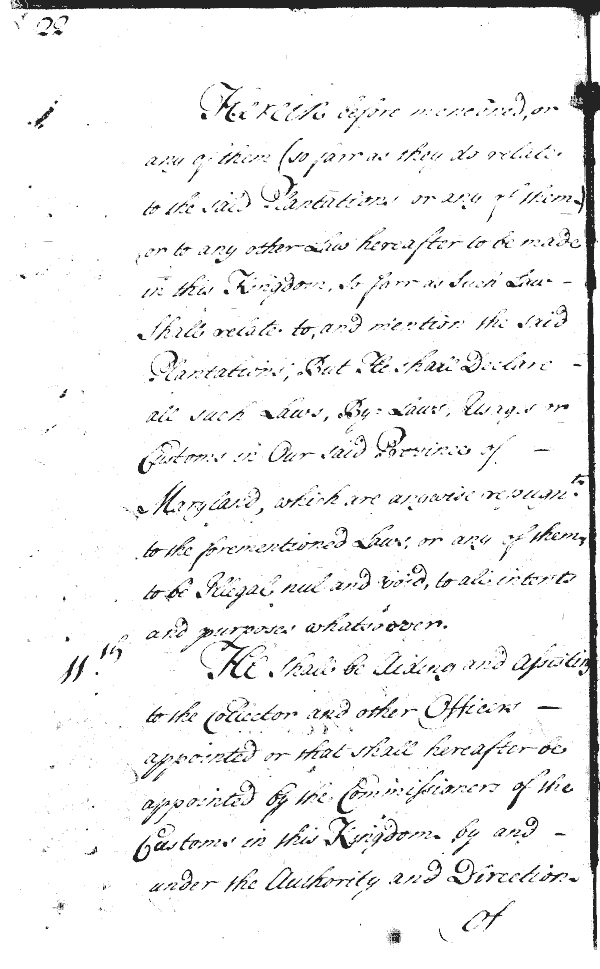 22
Herein before mencõned, or
any of them (so farr as they do relate
to the said Plantations or any of them)
or to any other Law hereafter to be made
in this Kingdom, so farr as such Law -
Shall relate to, and mention the said
Plantations; But He shall Declare -
all such Laws, By-Laws, Usages or
Customs in Our said Province of -
Maryland, which are anywise repugnt. to
to the forementioned Laws, or any of them,
to be Illegal nul and void, to all intents
and purposes whatsoever.
11th. He shall be Aiding and assisting
to the Collector and other Officers -
appointed or that shall hereafter be
appointed by the Commissioners of the
Customs in this Kingdom by and -
under the Authority and Direction
Of